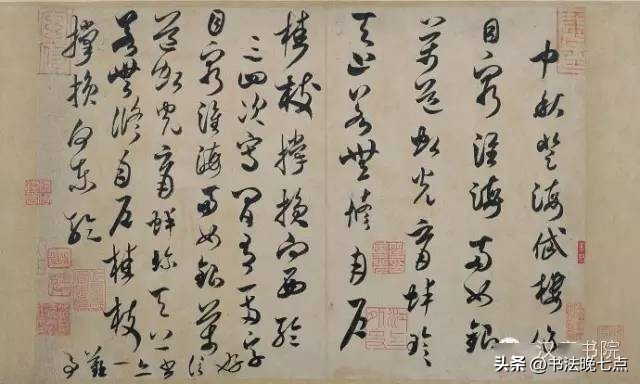 中秋登海岱樓作
目窮淮海兩如銀
萬道虹光育蚌珍
天上若無修月戶
桂枝撐損向西輪
三四次寫間有一兩字好
目窮淮海兩如銀萬
道虹光育蚌珍天上
若無修月戶桂枝
撐損向東輪
信書亦一難事
头条 @书法晚七点